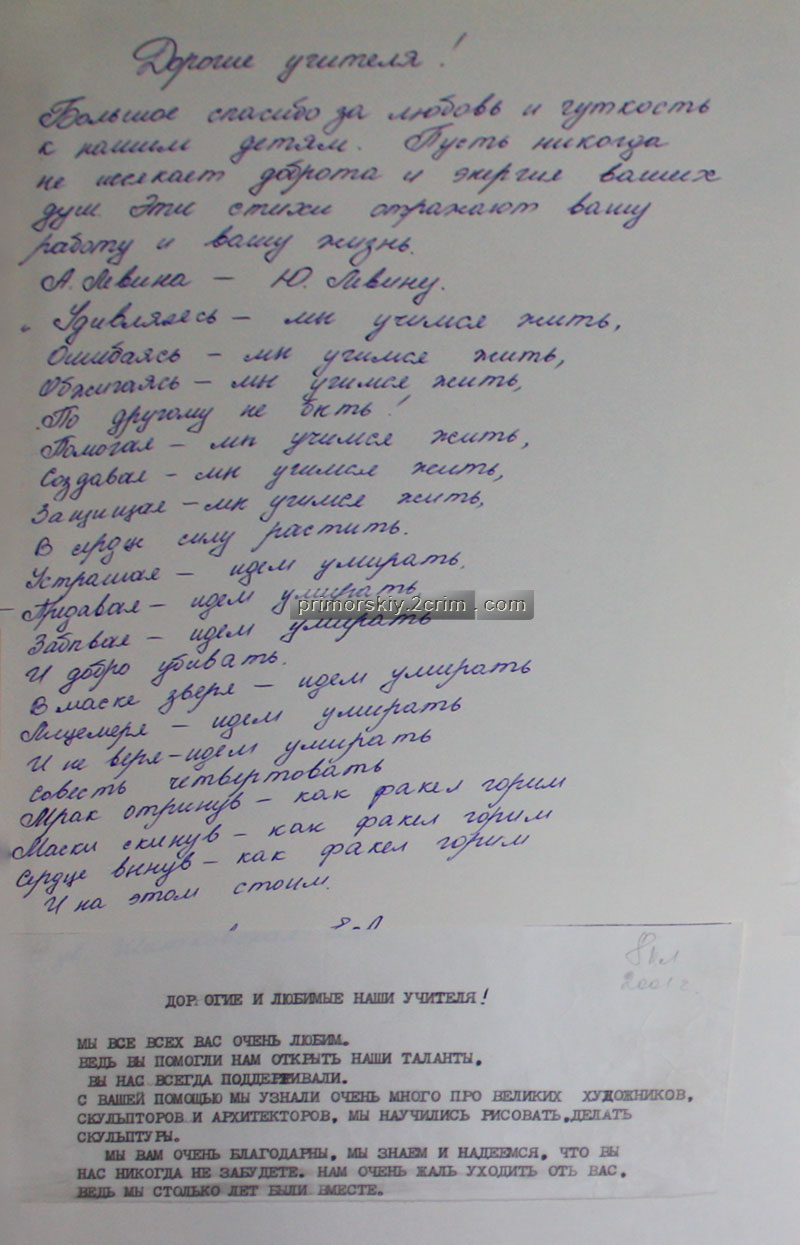 Дорогие учителя!
Большое спасибо за любовь и чуткость
к нашим детям. Пусть никогда
не иссякает доброта и энергия ваших
душ. Эти стихи отражают вашу
работу и вашу жизнь.
А. Левина – Ю. Левину.
„Удивляясь – мы учимся жить,
Ошибаясь – мы учимся жить,
Обжигаясь – мы учимся жить,
По другому не быть!
Помогая – мы учимся жить,
Создавая – мы учимся жить,
Защищая – мы учимся жить,
В сердце силу растить.
Устрашая – идем умирать,
Предавая – идем умирать,
primorskiy.2crim.com
Забывая – идем умирать
И добро убивать.
В маске зверя – идем умирать
Лицемеря – идем умирать
И не веря – идем умирать
Совесть четвертовать
Мрак отринув – как факел горим
Маски скинув – как факел горим
Сердце вынув – как факел горим
И на этом стоим.
8 кл
2001 г.
ДОР. ОГИЕ И ЛЮБИМЫЕ НАШИ УЧИТЕЛЯ!
МЫ ВСЕ ВСЕХ ВАС ОЧЕНЬ ЛЮБИМ.
ВЕДЬ ВЫ ПОМОГЛИ НАМ ОТКРЫТЬ НАШИ ТАЛАНТЫ,
ВЫ НАС ВСЕГДА ПОДДЕРЖИВАЛИ.
С ВАШЕЙ ПОМОЩЬЮ МЫ УЗНАЛИ ОЧЕНЬ МНОГО ПРО ВЕЛИКИХ ХУДОЖНИКОВ,
СКУЛЬПТОРОВ И АРХИТЕКТОРОВ, МЫ НАУЧИЛИСЬ РИСОВАТЬ,ДЕЛАТЬ
СКУЛЬПТУРЫ.
МЫ ВАМ ОЧЕНЬ БЛАГОДАРНЫ, МЫ ЗНАЕМ И НАДЕЕМСЯ, ЧТО ВЫ
НАС НИКОГДА НЕ ЗАБУДЕТЕ. НАМ ОЧЕНЬ ЖАЛЬ УХОДИТЬ ОТЬ ВАС,
ВЕДЬ МЫ СТОЛЬКО ЛЕТ БЫЛИ ВМЕСТЕ.